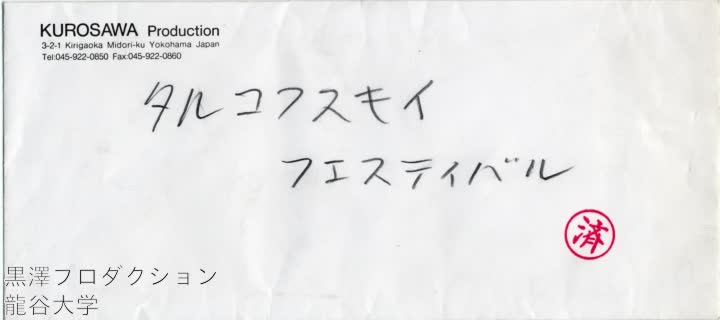 KUROSAWA Production
3-2-1 Kirigaoka Midori-ku Yokohama Japan
Tel:045-922-0850 Fax:045-922-0860
タルコフスキイ
フェスティバル
済
黒澤フロダクション
龍谷大学